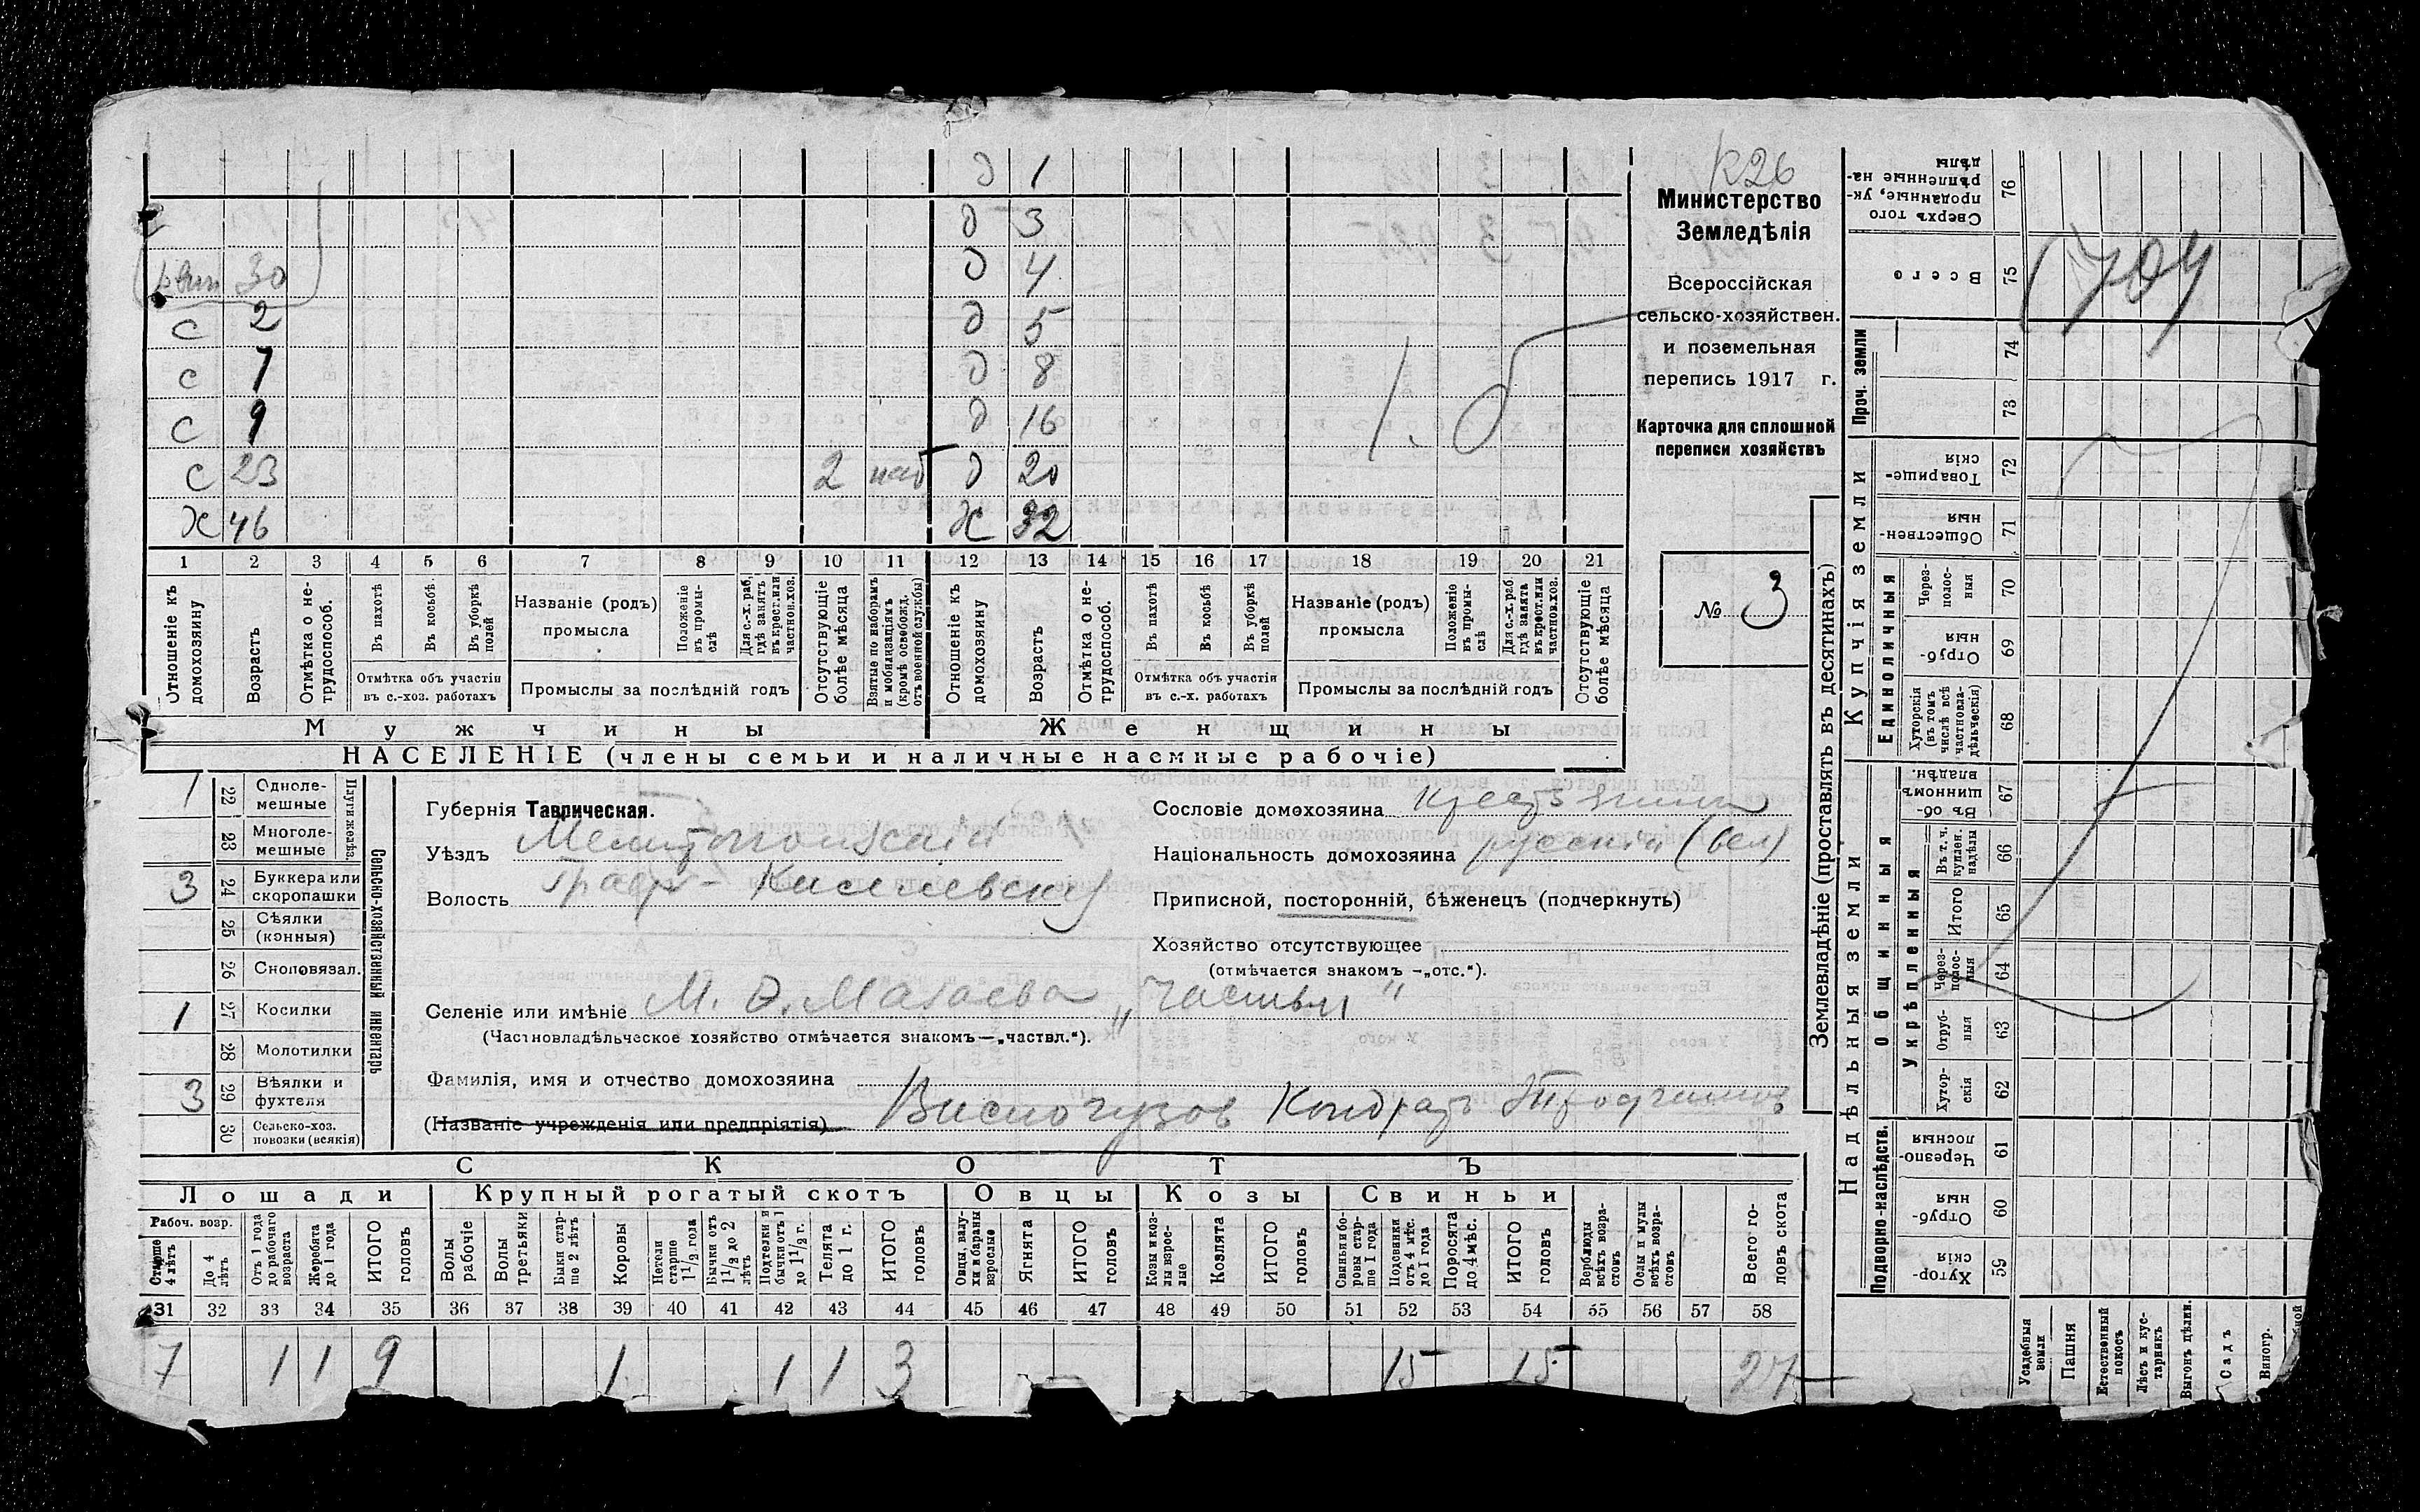 К26
д 1
д 3
д 4
30 д
с 2 д 5
с 7 д 8
с 9 д 16
с 23 2 наб д 20
х 46 ж 32
1 2 3 4 5 6 7 8 9 10 11 12 13 14 15 16 17 18 19 20 21
Отношеніе къ домохозяину
Возрастъ
Отмѣтка о нетрудоспособ.
Въ пахотѣ
Въ косьбѣ
Въ уборкѣ полей
Отмѣтка объ участіи
въ с.-хоз. работахъ
Названіе (родъ)
промысла
Положеніе въ промыслѣ
Для с.-х. раб. гдѣ занятъ въ крест. или частнов. хоз.
Промыслы за послѣдній годъ
Отсутствующіе болѣе мѣсяца
Взятые по наборамъ и мобилизаціямъ (кромѣ освобожд. отъ военной службы)
Отношеніе къ домохозяину
Возрастъ
Отмѣтка о нетрудоспособ.
Въ пахотѣ
Въ косьбѣ
Въ уборкѣ полей
Отмѣтка объ участіи
въ с.-х. работахъ
Названіе (родъ)
промысла
Положеніе въ промыслѣ
Для с.-х. раб. гдѣ занята въ крест. или частнов. хоз.
Промыслы за послѣдній годъ
Отсутствующіе болѣе мѣсяца
Мужчины Женщины
НАСЕЛЕНІЕ (члены семьи и наличные наемные рабочіе)
Министерство
Земледѣлія
Всероссійская
сельско-хозяйствен.
и поземельная
перепись 1917 г.
Карточка для сплошной
переписи хозяйствъ
№ 3
1 22 Одноле-
мешные
23 Многоле-
мешные
Плуги желѣз.
3 24 Буккера или
скоропашки
25 Сѣялки
(конныя)
26 Сноповязал.
1 27 Косилки
28 Молотилки
3 29 Вѣялки и
фухтеля
30 Сельско-хоз.
повозки (всякія)
Сельско-хозяйственный инвентарь
Губернія Таврическая.
Уѣздъ Мелитопольскій
Волость Граф-Киселевская
Селеніе или имѣніе М. Ѳ. Мазаева „частвл“
(Частновладѣльческое хозяйство отмѣчается знакомъ—„частвл.“).
Фамилія, имя и отчество домохозяина
(Названіе учрежденія или предпріятія) Кондрат Трофимов
Сословіе домохозяина
Національность домохозяина русскій (вел)
Приписной, посторонній, бѣженецъ (подчеркнуть)
Хозяйство отсутствующее
(отмѣчается знакомъ -„отс.“).
СКОТЪ
Лошади Крупный рогатый скотъ Овцы Козы Свиньи
Рабоч. возр.
Старше 4 лѣтъ
До 4 лѣтъ
Отъ 1 года до рабочаго возраста
Жеребята до 1 года
ИТОГО головъ
Волы рабочіе
Волы третьяки
Быки старше 2 лѣтъ
Коровы
Нетели старше 1 1/2 года
Бычки отъ 1 1/2 до 2 лѣтъ
Подтелки и бычки отъ 1 до 1 1/2 г.
Телята до 1 г.
ИТОГО головъ
Овцы, валухи и бараны взрослые
Ягнята
ИТОГО головъ
Козы и козлы взрослые
Козлята
ИТОГО головъ
Свиньи и боровы старше 1 года
Подсвинки отъ 4 мѣс. до 1 года
Поросята до 4 мѣс.
ИТОГО головъ
Верблюды всѣхъ возрастовъ
Ослы и мулы всѣхъ возрастовъ
Всего головъ скота
31 32 33 34 35 36 37 38 39 40 41 42 43 44 45 46 47 48 49 50 51 52 53 54 55 56 57 58
7 1 1 9 1 1 1 3 15 15 27
Землевладѣніе (проставлять въ десятинахъ)
Надѣльныя земли Купчія земли Проч. земли
Подворно-наслѣдств. Общинныя Единоличныя
Укрѣпленныя
Сверхъ того проданные, укрѣпленные надѣлы 76
Всего 75
74
73
Товарищескія 72
Общественныя 71
Черезполосныя 70
Отрубныя 69
Хуторскія (въ томъ числѣ всѣ частновладѣльческія) 68
Въ общинномъ владѣн. 67
Въ т. ч. куплен. надѣлы 66
Итого 65
Черезполосныя 64
Отрубныя 63
Хуторскія 62
Черезполосныя 61
Отрубныя 60
Хуторскія 59
Усадебныя земли
Пашня
Естественный покосъ
Лѣсъ и кустарникъ
Выгонъ цѣлин.
Садъ
Виногр.